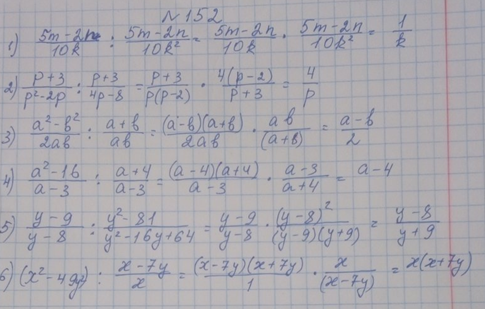 №152
1) (5m-2n)/(10k) : (5m-2n)/(10k²) = (5m-2n)/(10k) · (5m-2n)/(10k²) = 1/k
2) (p+3)/(p²-2p) : (p+3)/(4p-8) = (p+3)/(p(p-2)) · (4(p-2))/(p+3) = 4/p
3) (a²-b²)/(2ab) : (a+b)/(ab) = ((a-b)(a+b))/(2ab) · (ab)/((a+b)) = (a-b)/2
4) (a²-16)/(a-3) : (a+4)/(a-3) = ((a-4)(a+4))/(a-3) · (a-3)/(a+4) = a-4
5) (y-9)/(y-8) : (y²-81)/(y²-16y+64) = (y-9)/(y-8) · ((y-8)²)/((y-9)(y+9)) = (y-8)/(y+9)
6) (x²-49y) : (x-7y)/x = ((x-7y)(x+7y))/1 · x/((x-7y)) = x(x+7y)